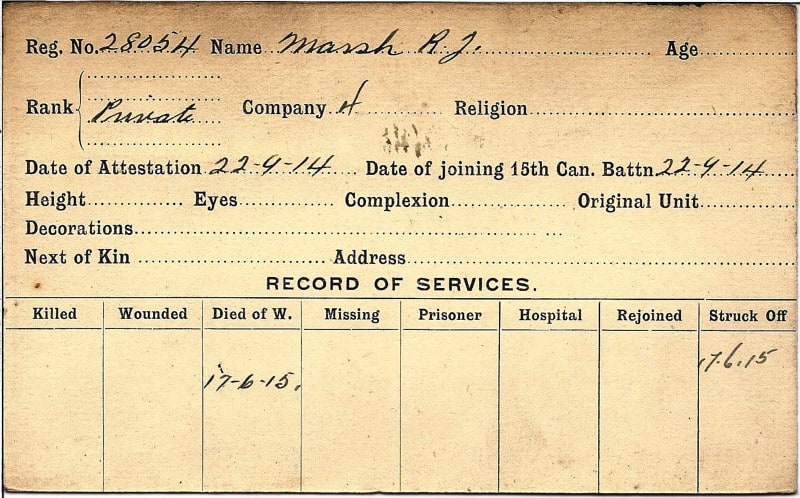 Reg. No. 28054 Name Marsh R. J. Age
Rank Private Company A Religion
Date of Attestation 22-9-14 Date of joining 15th Can. Battn. 22-9-14
Height Eyes Complexion Original Unit
Decorations
Next of Kin Address
RECORD OF SERVICES.
Killed Wounded Died of W. Missing Prisoner Hospital Rejoined Struck Off
17-6-15. 17.6.15